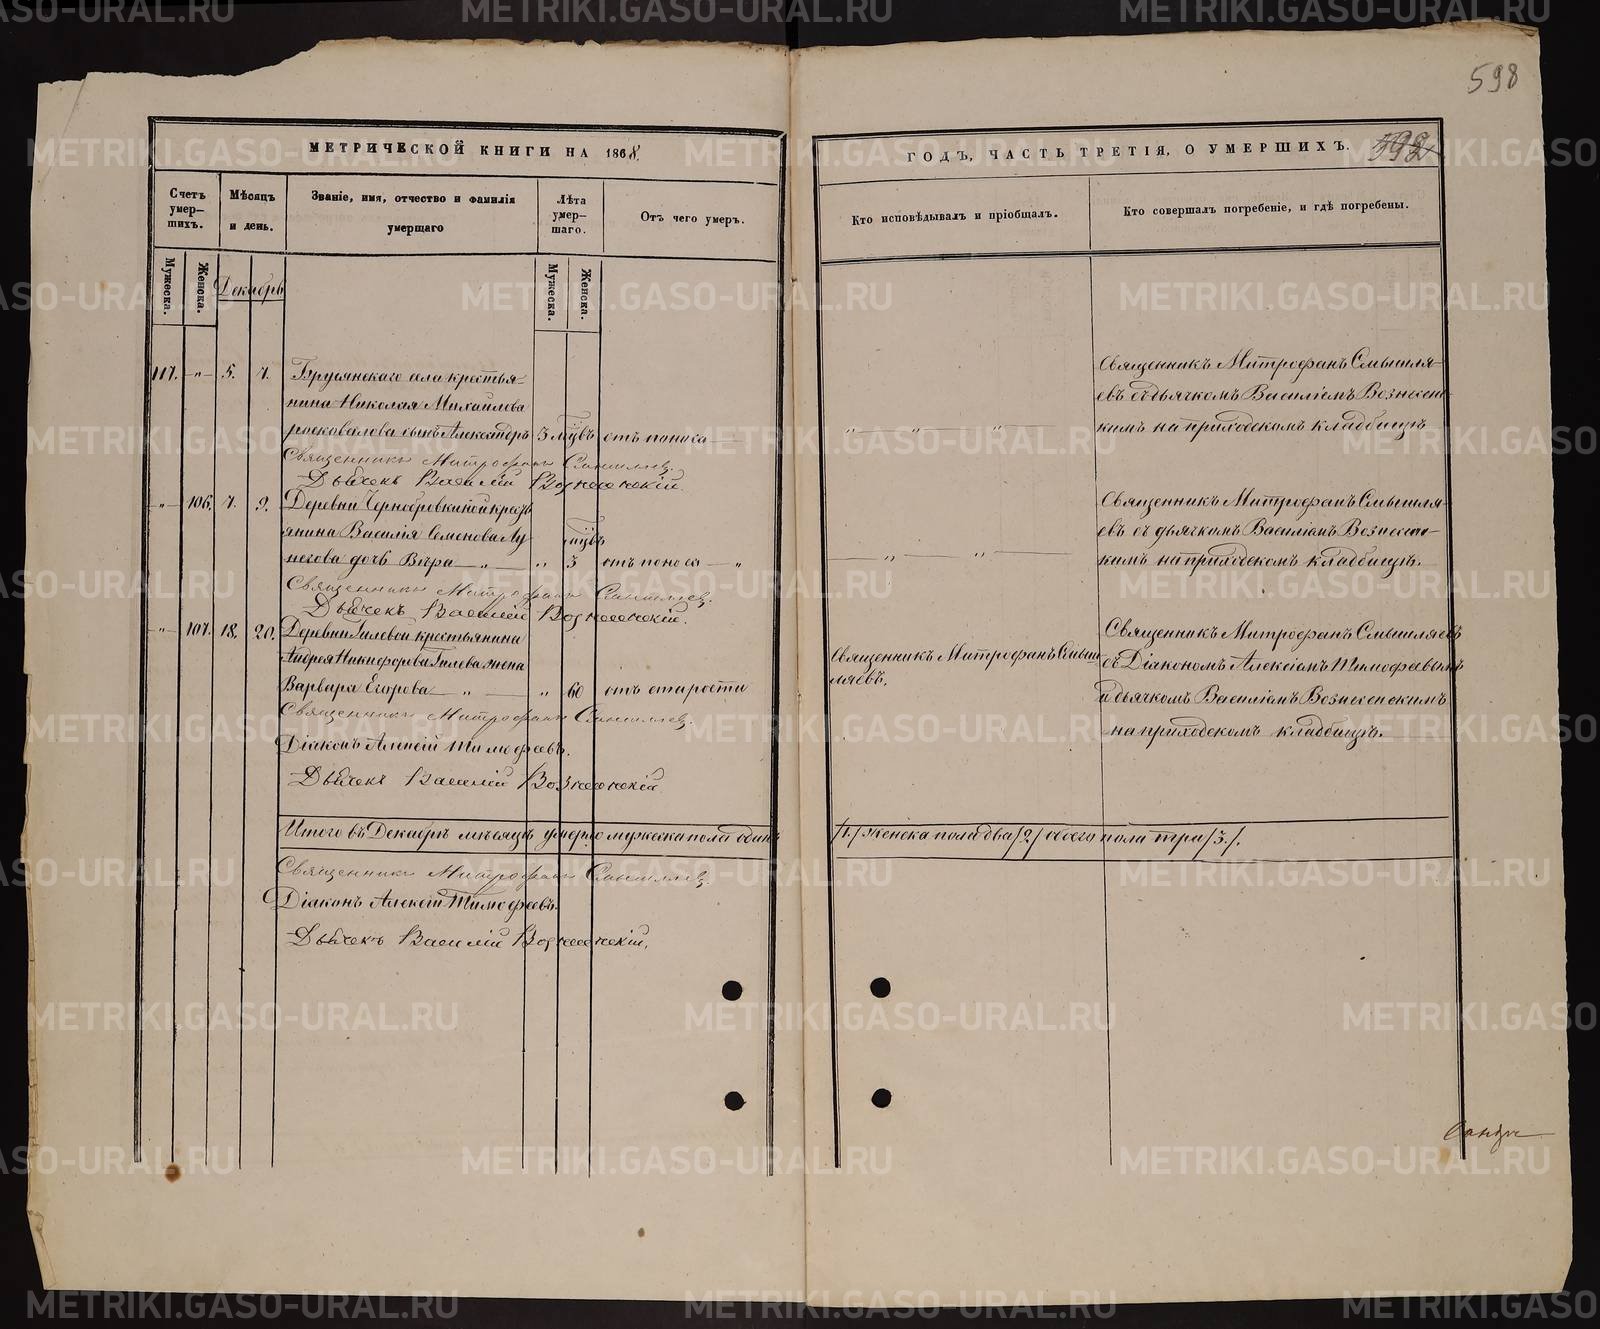 598
МЕТРИЧЕСКОЙ КНИГИ НА 1868.
ГОДЪ, ЧАСТЬ ТРЕТІЯ, О УМЕРШИХЪ.
Счетъ умер-шихъ.
Мѣсяцъ и день.
Званіе, имя, отчество и фамилія умершаго
Лѣта умер-шаго.
Отъ чего умеръ.
Кто исповѣдывалъ и пріобщалъ.
Кто совершалъ погребеніе, и гдѣ погребены.
Мужеска.
Женска.
Декабрь
Мужеска.
Женска.
117. „ 5. 7. Брусянскаго села крестья-
нина Николая Михаилова
сынъ Александръ 3 мцвъ отъ поноса
Священникъ Митрофанъ Смышляевъ.
Дьячекъ Василій Вознесенскій.
Священникъ Митрофанъ Смышля-
евъ съ дьячкомъ Василіемъ Вознесен-
кимъ на приходскомъ кладбищѣ
„ 106. 7. 9. Деревни Чернобровкиной крест
янина Василія Семенова Лу-
мцвъ
негова дочь Вѣра „ „ 3 отъ поноса „
Священникъ Митрофанъ Смышляевъ.
Дьячекъ Василій Вознесенскій.
Священникъ Митрофанъ Смышля-
евъ съ дьячкомъ Василіемъ Вознесенс-
кимъ на приходскомъ кладбищѣ.
„ 107. 18. 20. Деревни Гилевой крестьянина
Андрея Никифорова Гилева жена
Варвара Егорова „ „ 60 отъ старости
Священникъ Митрофанъ Смышляевъ.
Діаконъ Алексій Тимофеевъ.
Дьячекъ Василій Вознесенскій
Священникъ Митрофанъ Смыш
ляевъ.
Священникъ Митрофанъ Смышляевъ
съ Діакономъ Алексіемъ Тимофеевымъ
и дьячкомъ Василіемъ Вознесенскимъ
на приходскомъ кладбищѣ.
Итого въ Декабрѣ мѣсяцѣ умерло мужеска пола одинъ /1./ женска пола два /2/ обоего пола три /3./.
Священникъ Митрофанъ Смышляевъ.
Діаконъ Алексій Тимофеевъ.
Дьячекъ Василій Вознесенскій.
METRIKI.GASO-URAL.RU